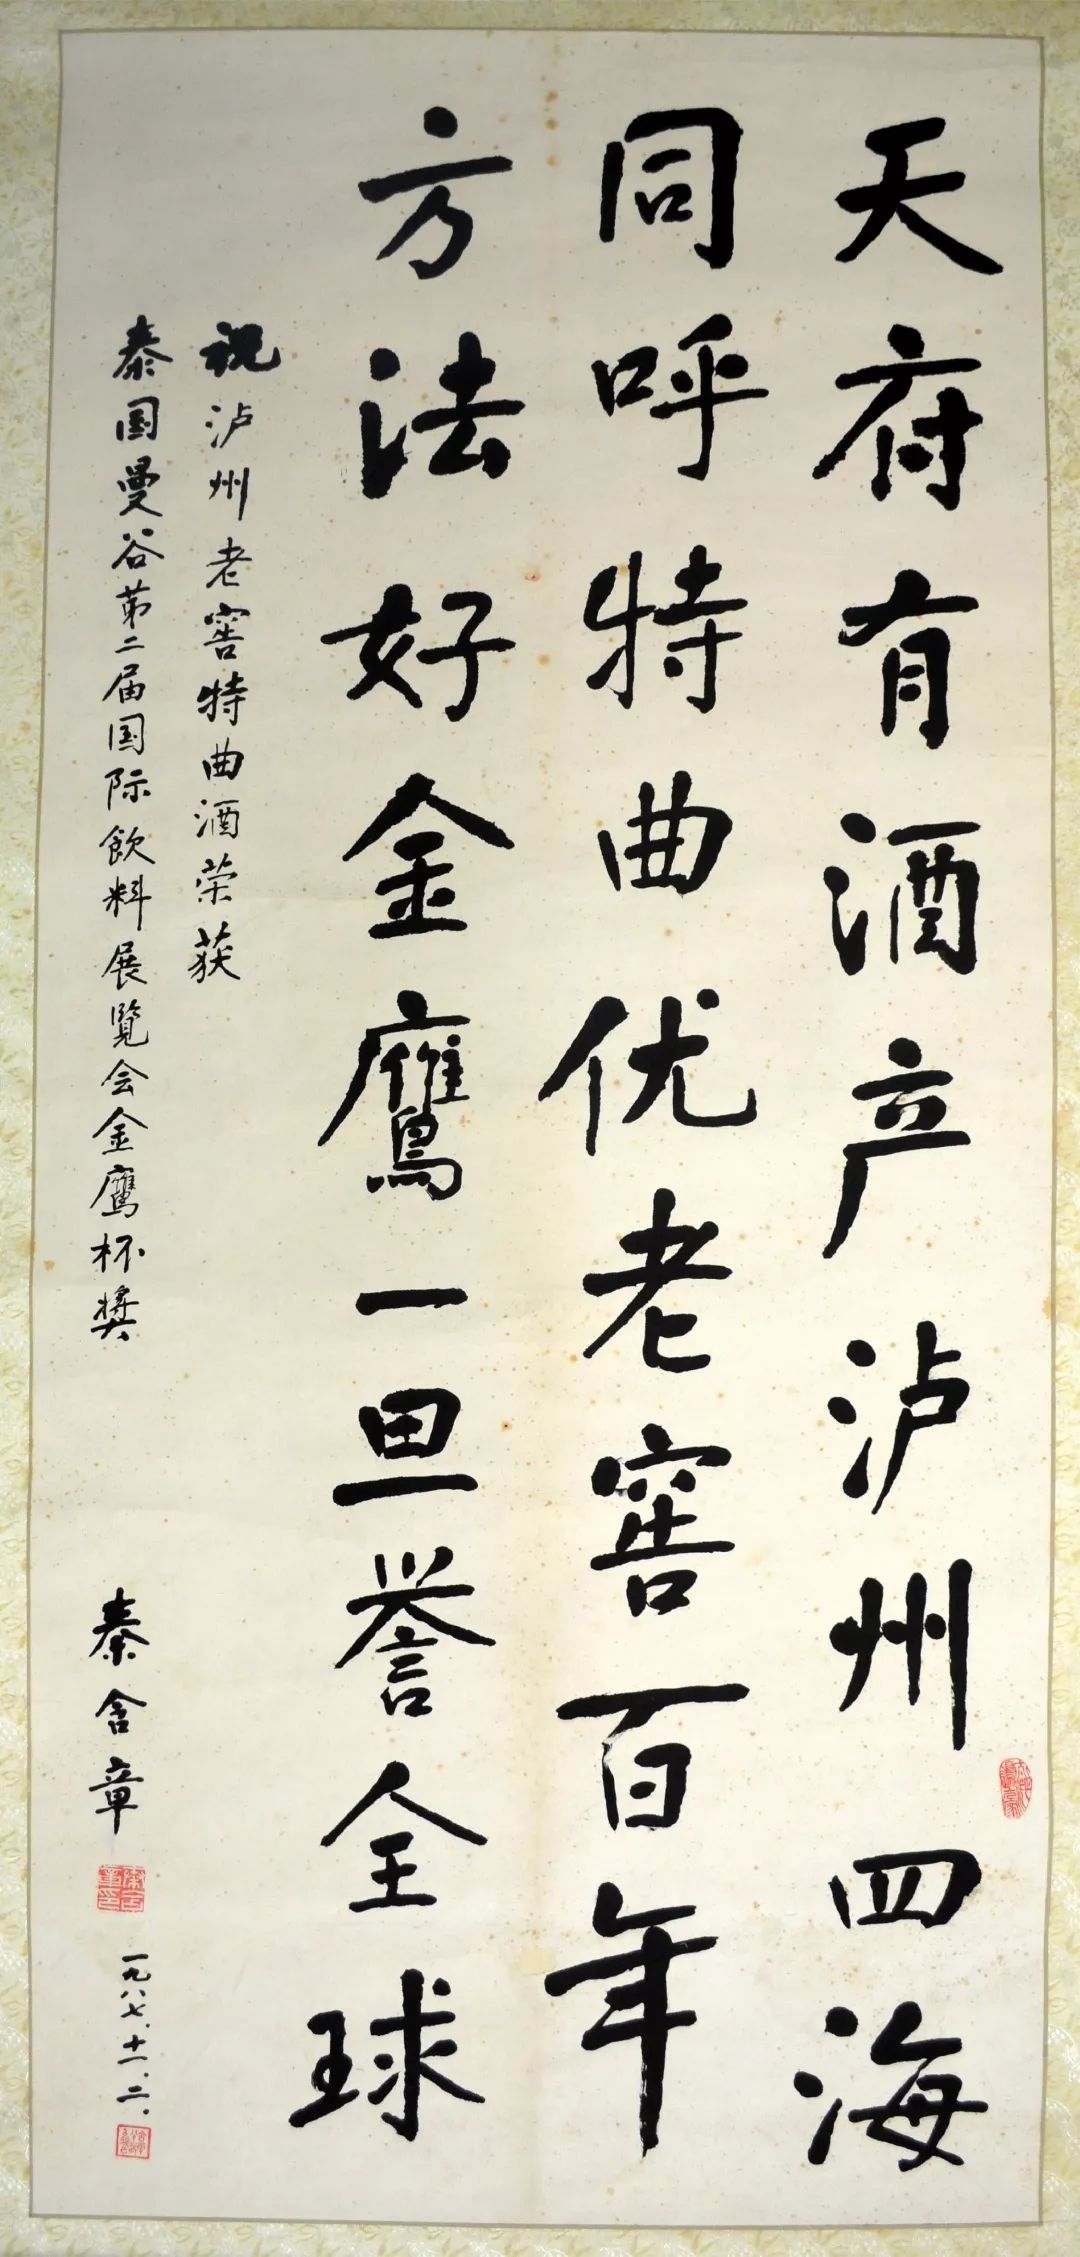 天府有酒产泸州四海
同呼特曲优老窖百年
方法好金鹰一旦誉全球
祝泸州老窖特曲酒荣获
泰国曼谷第二届国际飲料展覧会金鹰杯奬
秦含章
一九八七.十一.二.